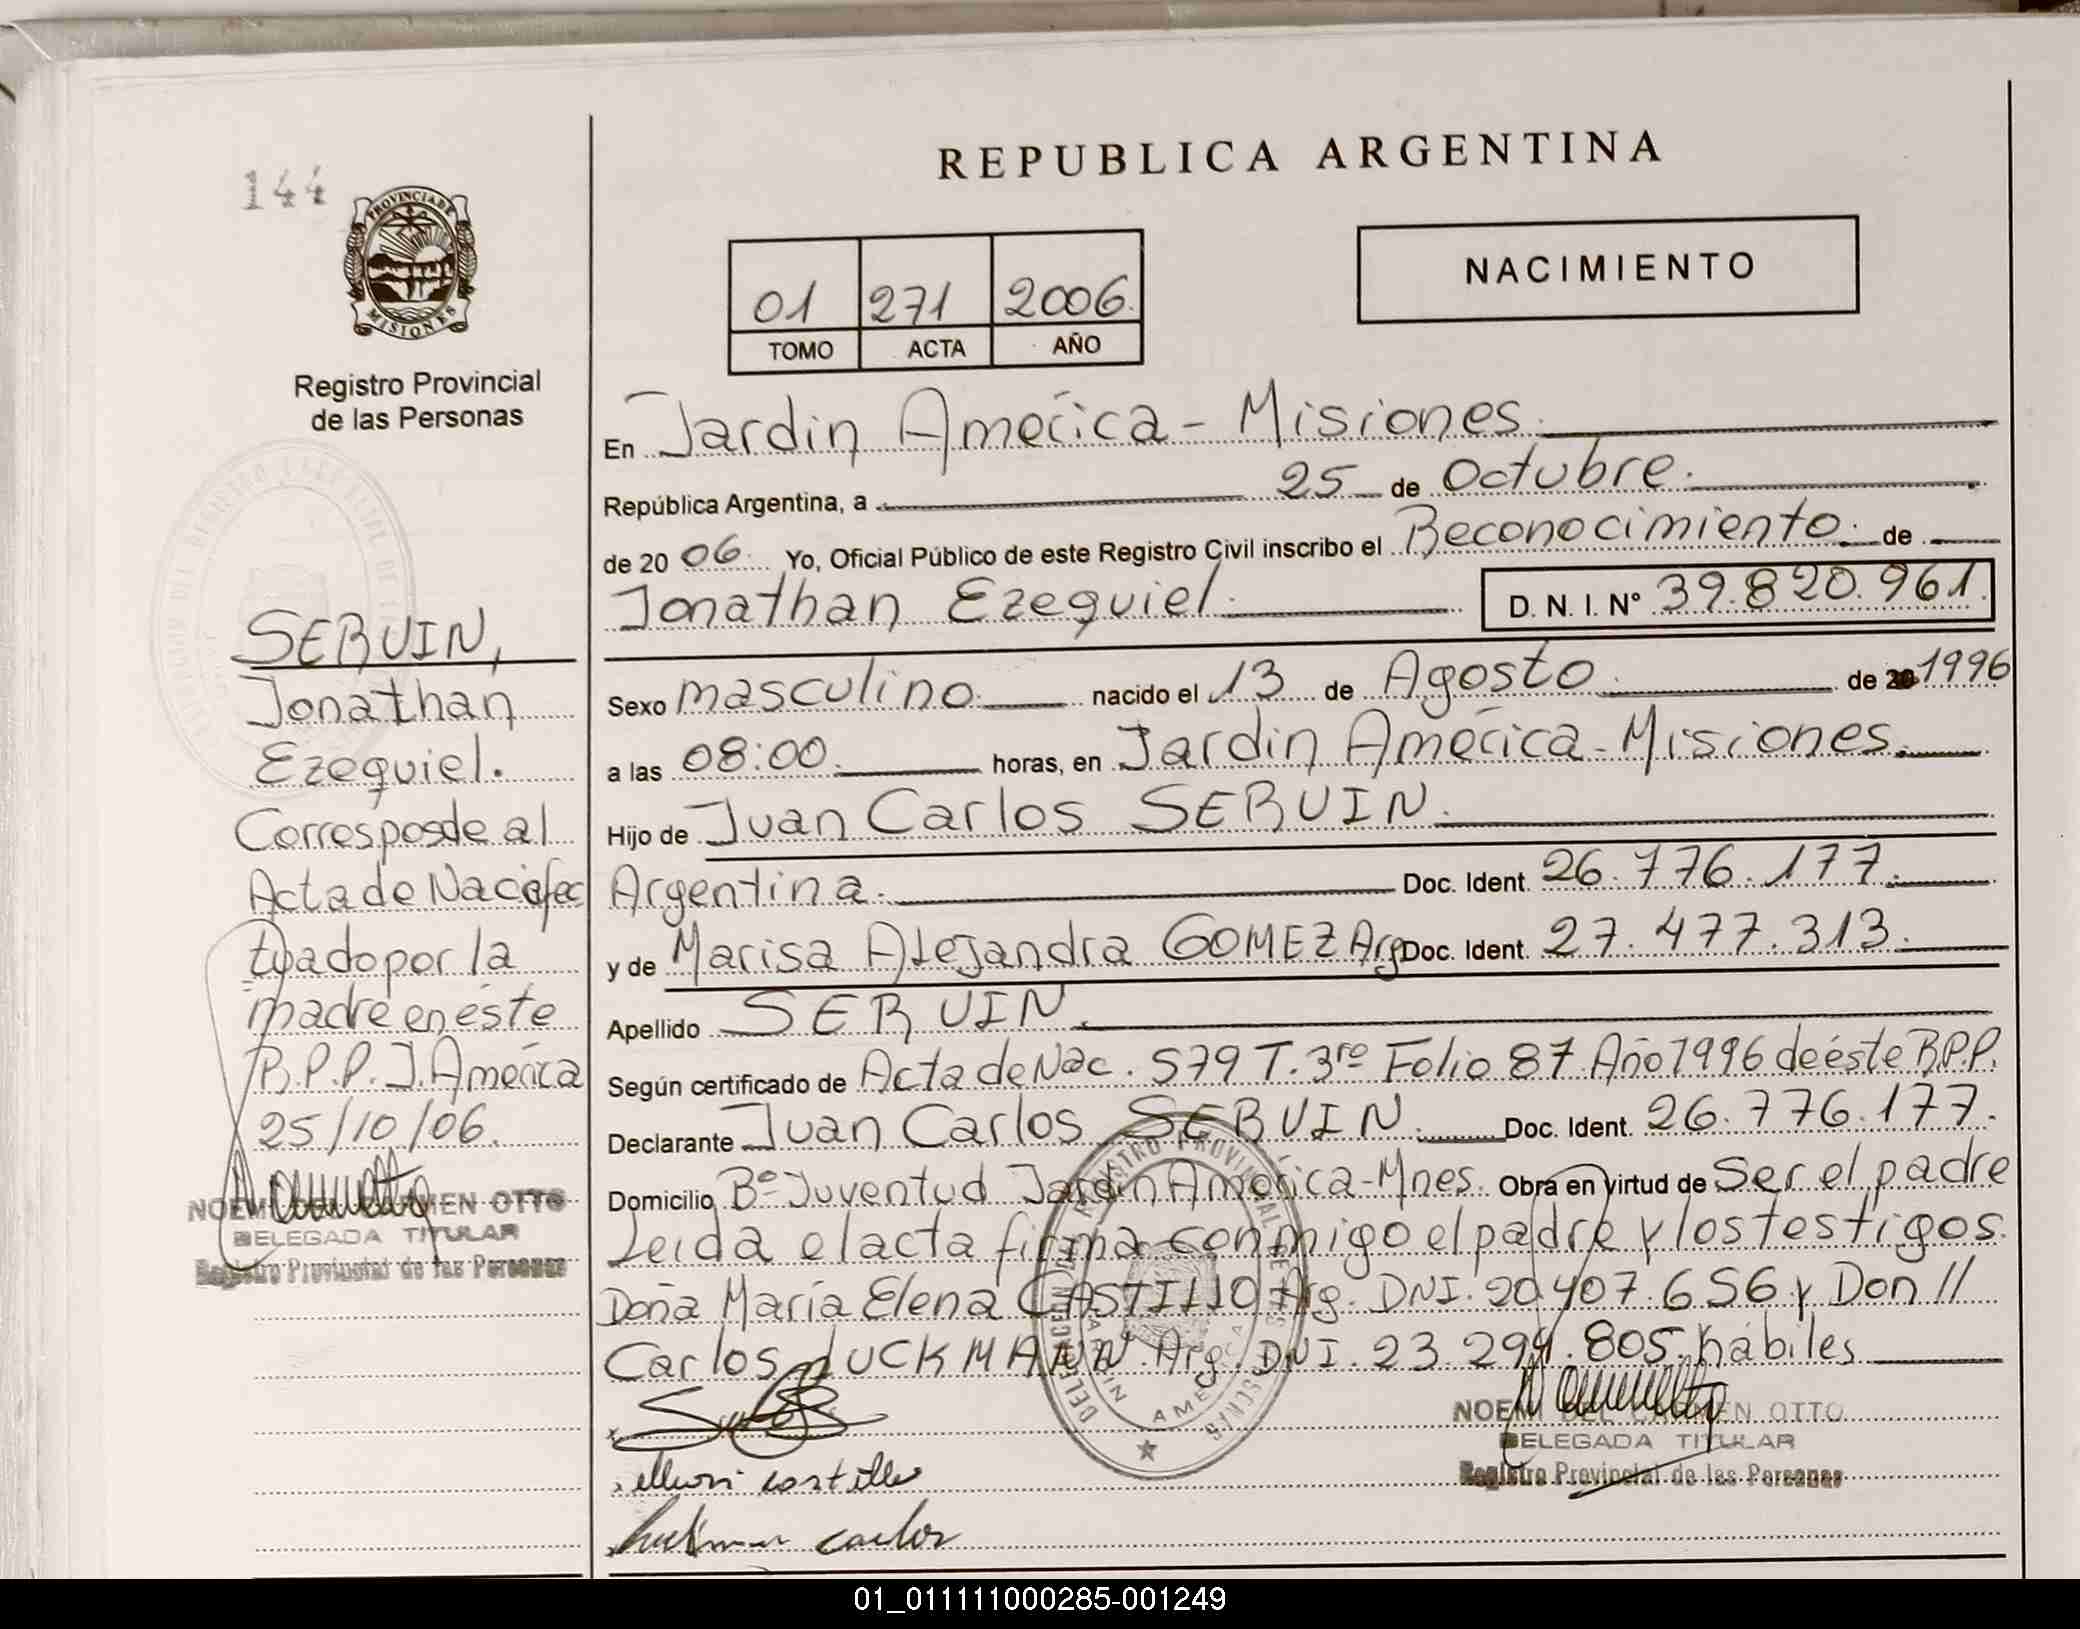 144
PROVINCIA DE
MISIONES
Registro Provincial
de las Personas
REPUBLICA ARGENTINA
NACIMIENTO
01 271 2006.
TOMO ACTA AÑO
En Jardin América - Misiones.
República Argentina, a 25 de Octubre.
de 20 06. Yo, Oficial Público de este Registro Civil inscribo el Reconocimiento. de
Jonathan Ezequiel. D. N. I. Nº 39.820.961
Sexo masculino. nacido el 13 de Agosto de 20 1996
a las 08:00. horas, en Jardin América - Misiones.
Hijo de Juan Carlos SERUIN.
Argentina. Doc. Ident. 26.776.177.
y de Marisa Alejandra GOMEZ Arg Doc. Ident. 27.477.313.
Apellido SERUIN.
Según certificado de Acta de Nac. 579 T. 3ro Folio 87 Año 1996 de éste R.P.P.
Declarante Juan Carlos SERUIN. Doc. Ident. 26.776.177.
Domicilio Bº Juventud Jardin América - Mnes. Obra en virtud de Ser el padre
Leida el acta firma conmigo el padre y los testigos.
Doña María Elena CASTILLO Arg. DNI. 20.407.656 y Don //
Carlos LUCKMANN. Arg. DNI. 23.294.805. hábiles
castillo
carlos
NOEMI DEL CARMEN OTTO
DELEGADA TITULAR
Registro Provincial de las Personas
SERUIN,
Jonathan
Ezequiel.
Corresposde al
Acta de Nac efec
tuado por la
madre en éste
R.P.P. J. América
25/10/06.
NOEMI DEL CARMEN OTTO
DELEGADA TITULAR
Registro Provincial de las Personas
01_011111000285-001249